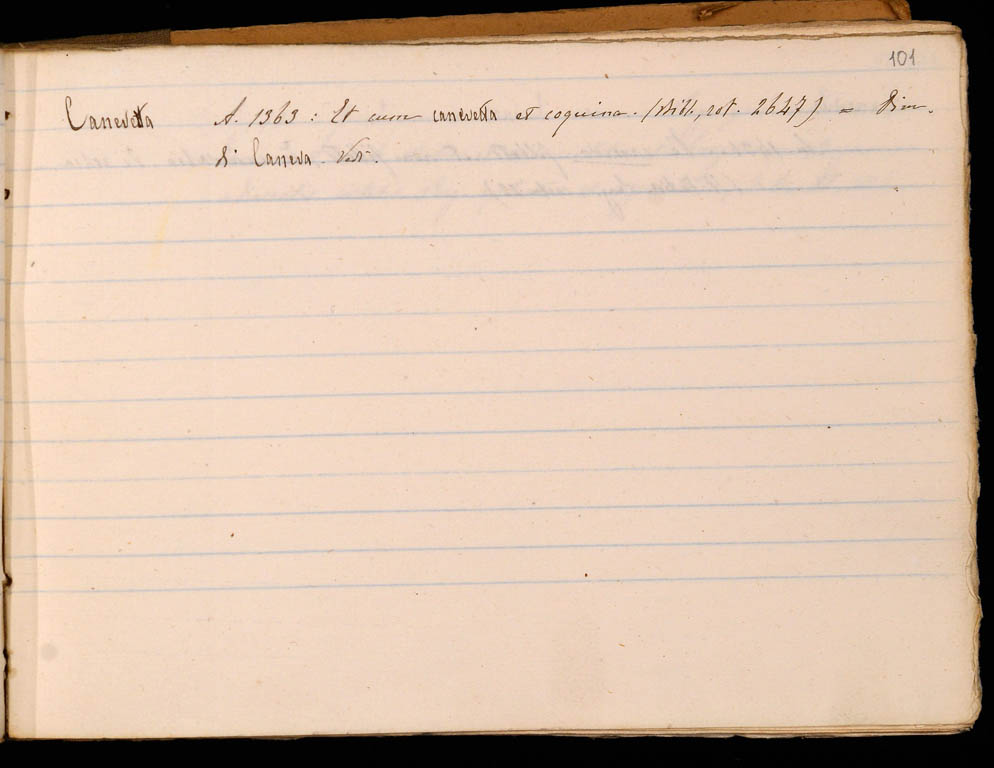 101
Canevetta A. 1363: Et cum canevetta et coquina. (Ibid., rot. 2647) = Dim.
di Caneva. Vedi.